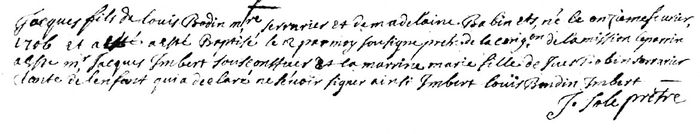 Jacques fils de louis Bodin mtre serrurier et de madelaine Babin né le onzieme feurier
1706 et a esté Baptisé le 12 par moy soussigné pretre de la congon de la mission le parrin
a esté mr Jacques Imbert et la marrine marie fille de serrurier
tante de lenfant qui a declaré ne scavoir signer ainsi Imbert Louis Boudin Imbert
J. Sole prêtre